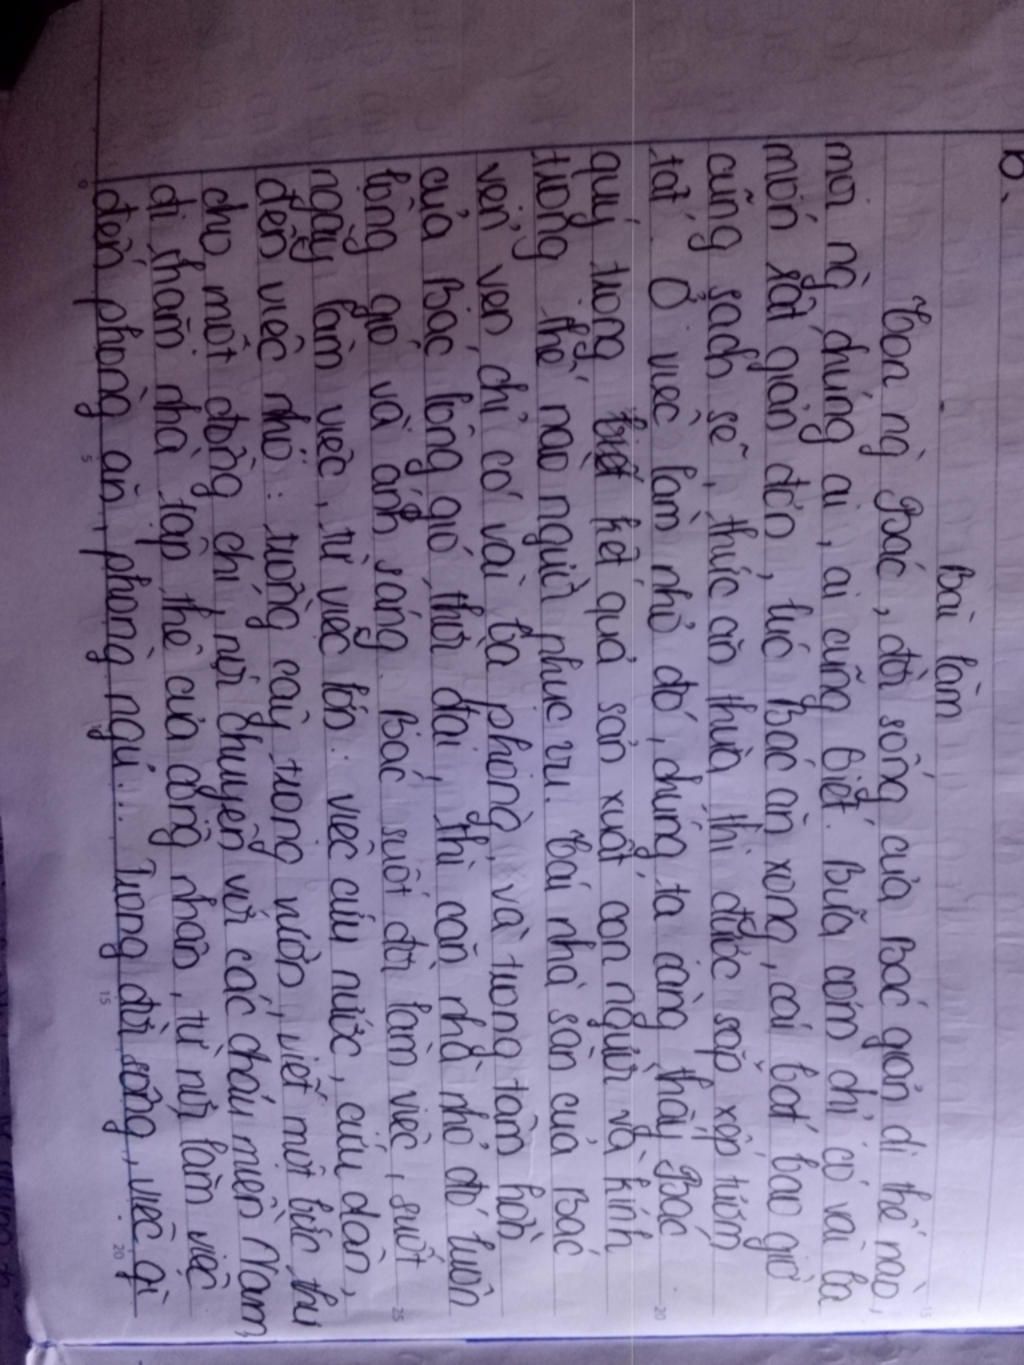 b.
Bài làm
Con người Bác, đời sống của Bác giản dị thế nào,
mọi người chúng ai, ai cũng biết. Bữa cơm chỉ có vài ba
món rất giản đơn, lúc Bác ăn xong, cái bát bao giờ
cũng sạch sẽ, thức ăn thừa thì được sắp xếp tươm
tất. Ở việc làm nhỏ đó, chúng ta càng thấy Bác
quý trọng kết quả sản xuất con người và kính
trọng thế nào người phục vụ. Cái nhà sàn của Bác
vẻn vẹn chỉ có vài ba phòng, và trong tâm hồn
của Bác lộng gió thời đại, thì căn nhà nhỏ đó luôn
lộng gió và ánh sáng. Bác suốt đời làm việc, suốt
ngày làm việc, từ việc lớn: việc cứu nước, cứu dân,
đến việc nhỏ: trồng cây trong vườn, viết một bức thư
cho một đồng chí, nói chuyện với các cháu miền Nam,
đi thăm nhà tập thể của công nhân, từ nơi làm việc
đến phòng ăn, phòng ngủ... Trong đời sống, việc gì